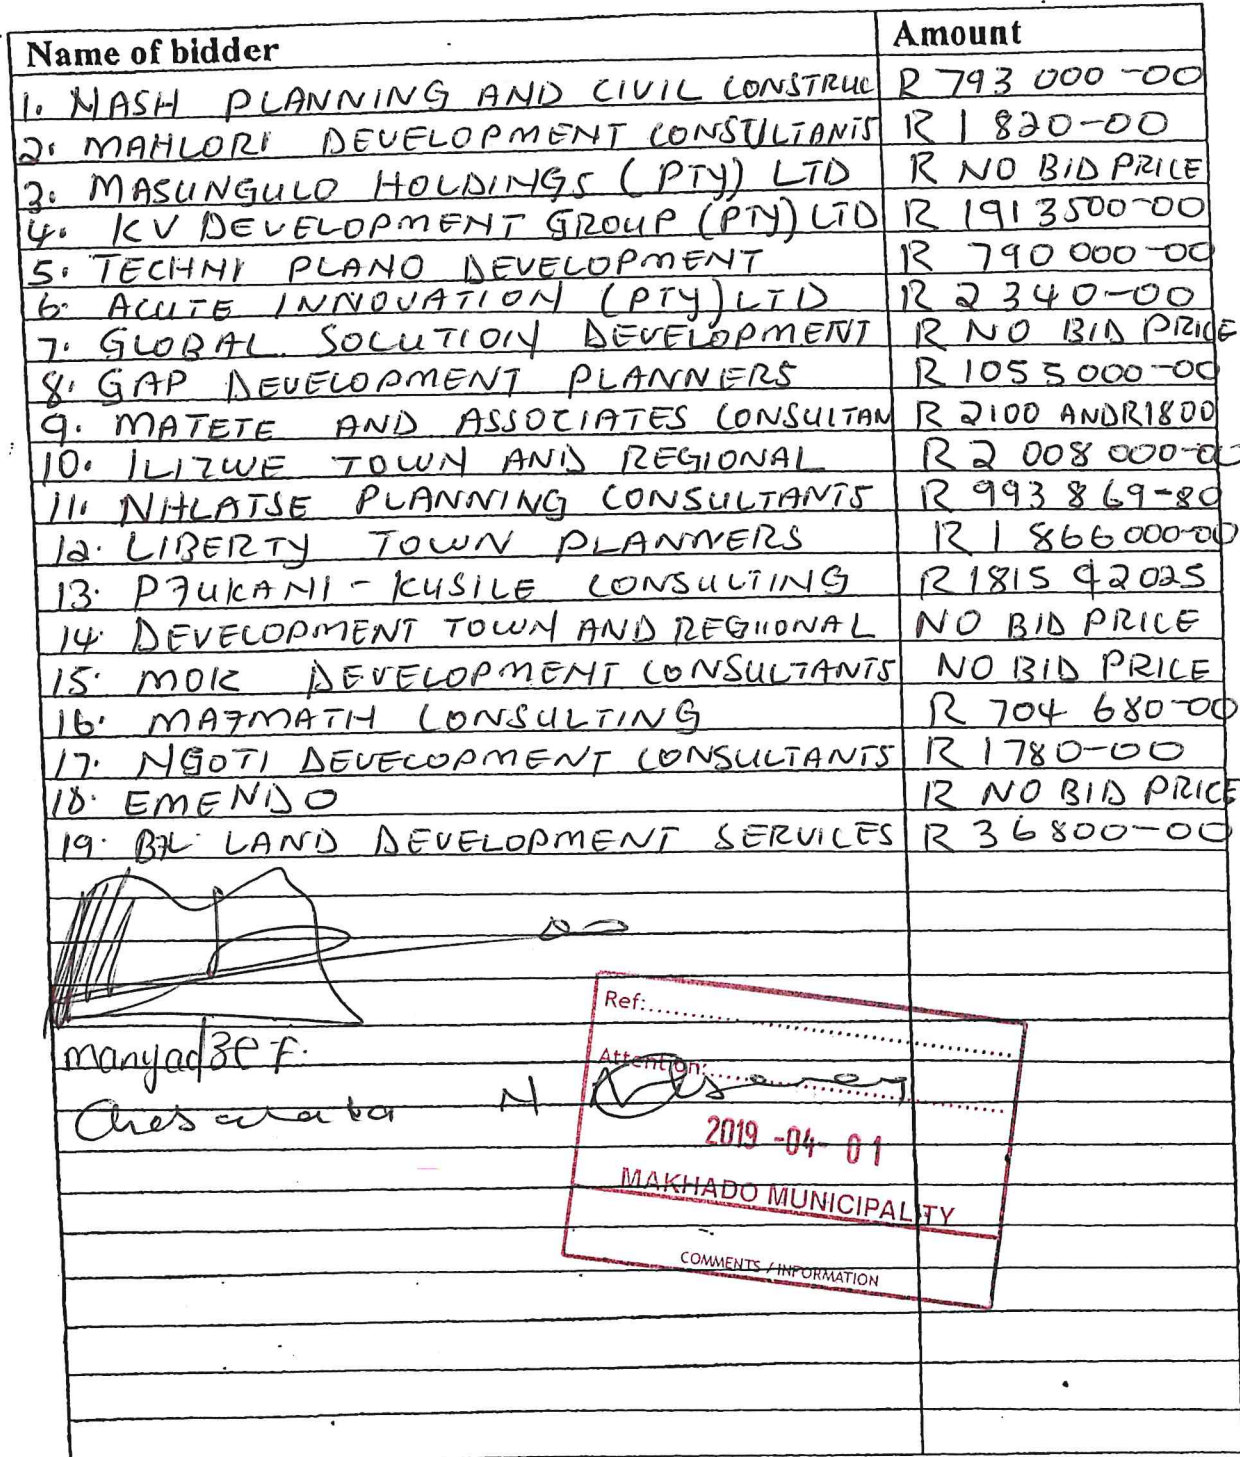 Name of bidder Amount
1. MASH PLANNING AND CIVIL CONSTRUC R 793 000-00
2. MAHLORI DEVELOPMENT CONSULTANTS R 1 820-00
3. MASUNGULO HOLDINGS (PTY) LTD R NO BID PRICE
4. KV DEVELOPMENT GROUP (PTY) LTD R 1913500-00
5. TECHNI PLANO DEVELOPMENT R 790 000-00
6. ACUTE INNOVATION (PTY) LTD R 2 340-00
7. GLOBAL SOLUTION DEVELOPMENT R NO BID PRICE
8. GAP DEVELOPMENT PLANNERS R 1055000-00
9. MATETE AND ASSOCIATES CONSULTAN R 2100 AND R1800
10. ILIZWE TOWN AND REGIONAL R 2 008 000-00
11. NHLATSE PLANNING CONSULTANTS R 993 869-80
12. LIBERTY TOWN PLANNERS R 1 866000-00
13. PFUKANI-KUSILE CONSULTING R 1815 92025
14. DEVELOPMENT TOWN AND REGIIONAL NO BID PRICE
15. MOK DEVELOPMENT CONSULTANTS NO BID PRICE
16. MAFMATH CONSULTING R 704 680-00
17. NGOTI DEVELOPMENT CONSULTANTS R 1780-00
18. EMENDO R NO BID PRICE
19. LAND DEVELOPMENT SERVICES R 36800-00
Ref:
Manyadze F.
Attention:
2019 -04- 01
MAKHADO MUNICIPALITY
COMMENTS / INFORMATION